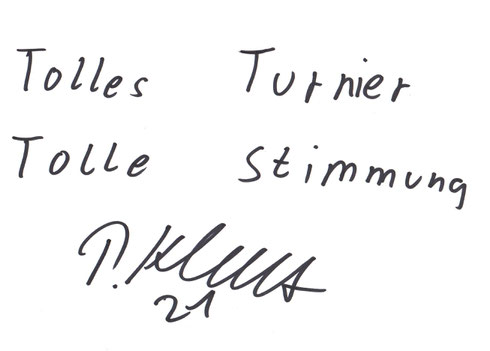 Tolles Turnier
Tolle Stimmung
21